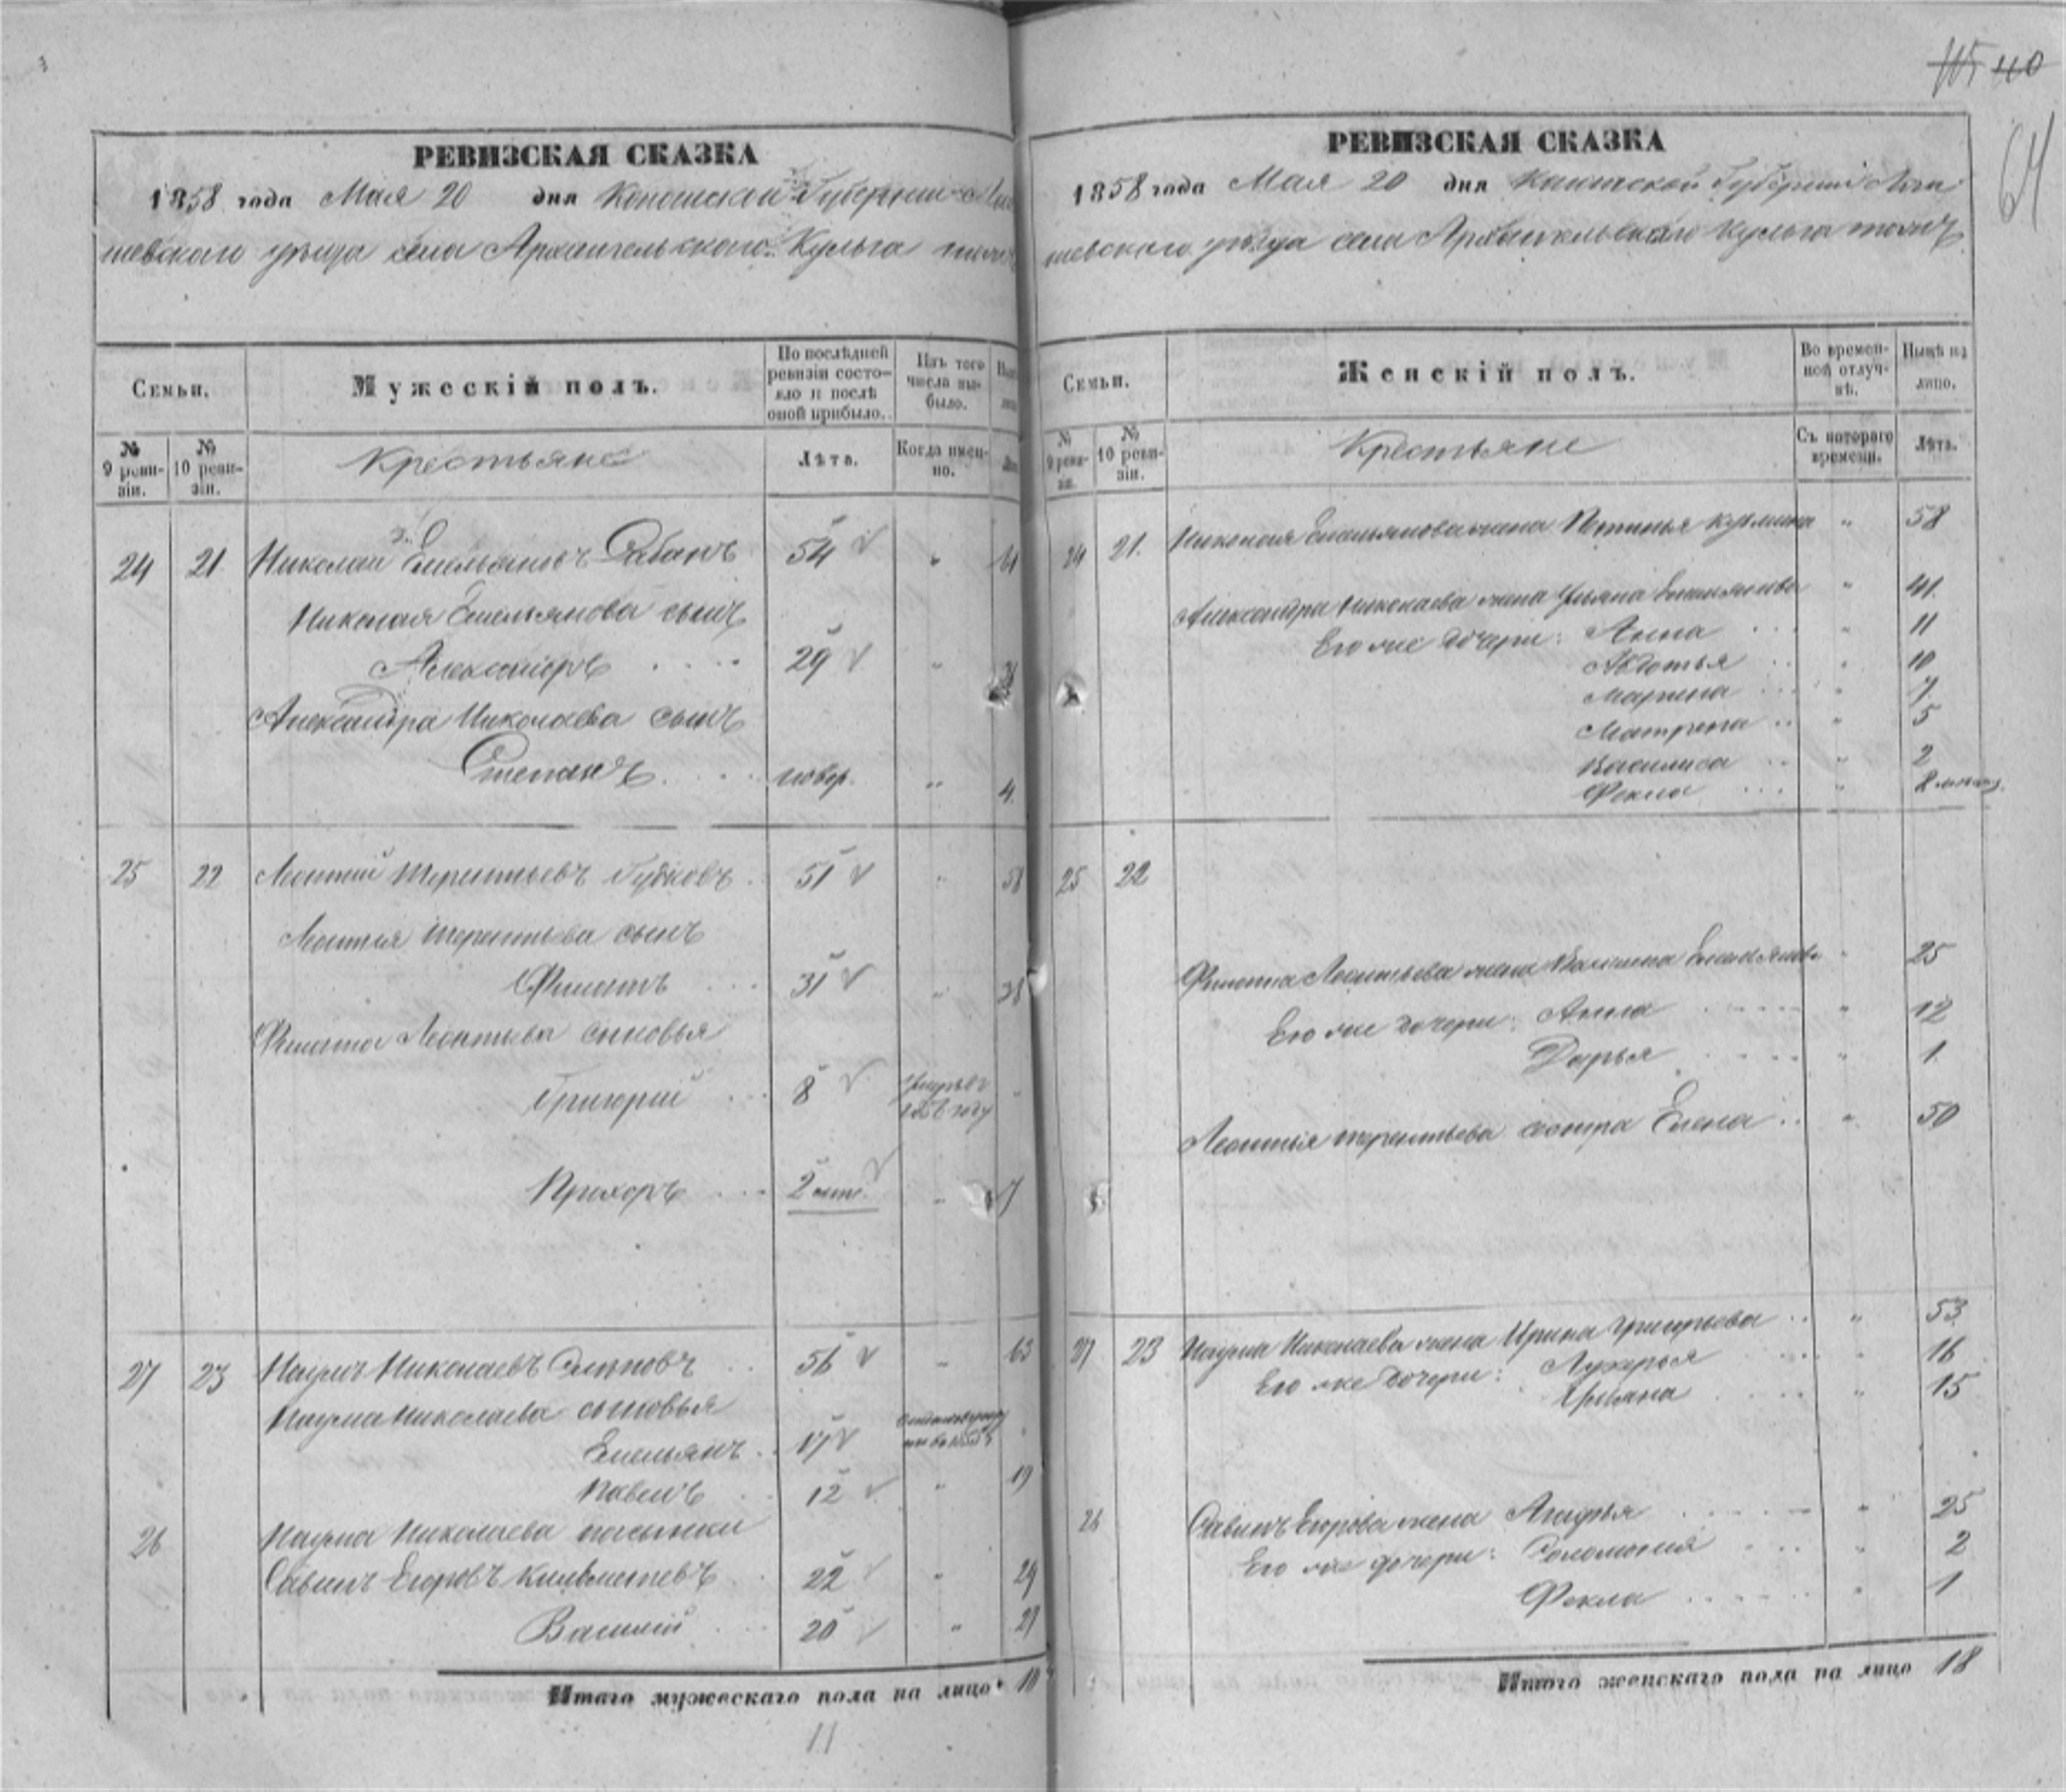 115 40
64
РЕВИЗСКАЯ СКАЗКА
1858 года Мая 20 дня Губернии
уѣзда села Архангельскаго Кульга тожъ
Семьи.
Мужескій полъ.
По послѣдней ревизіи состо-
яло и послѣ
оной прибыло.
Изъ того
числа вы-
было.
№
9 реви-
зіи.
№
10 реви-
зіи.
Крестьяне
Лѣта.
Когда имен-
но.
24 21 Николай Емельяновъ 54 "
Николая Емельянова сынъ
Александръ 29 "
Александра Николаева сынъ
Степанъ новор. " 4
25 22 Леонтий Терентьевъ Губковъ 51 " 58
Леонтия Терентьева сынъ
Филатъ 31 " 38
Филата Леонтьева сыновья
Григорий 8 умръ въ
году
Прохоръ 2 " 7
27 23 Наумъ Николаевъ 56 " 63
Наума Николаева сыновья
Емельянъ 17
Павелъ 12 " 19
26 Наума Николаева пасынки
Савинъ Егоровъ 22 " 29
Василий 20 " 27
Итого мужескаго пола на лицо 10
11
РЕВИЗСКАЯ СКАЗКА
1858 года Мая 20 дня Губерніи
шевскаго уѣзда села Архангельскаго Кульга тожъ
Семьи.
Женскій полъ.
Во времен-
ной отлуч-
кѣ.
Нынѣ на
лицо.
№
9 реви-
зіи.
№
10 реви-
зіи.
Крестьяне
Съ котораго
времени.
Лѣта.
24 21. Николая Емельянова жена " 58
Александра Николаева жена Ульяна Емельянова " 41.
Его же дочери: Анна " 11
Авдотья " 10
Марина " 7.
Матрена " 5
Василиса " 2
Фекла " 8 месяц.
25 22
Филата Леонтьева жена Емельянова " 25
Его же дочери: Анна " 12
Дарья " 1.
Леонтья Терентьева сестра Елена " 50
27 23 Наума Николаева жена Ирина Григорьева " 53
Его же дочери: Лукерья " 16
Ульяна " 15
26 Савинъ Егорова жена Агафья " 25
Его же дочери: Соломония " 2
Фекла " 1
Итого женскаго пола на лицо 18